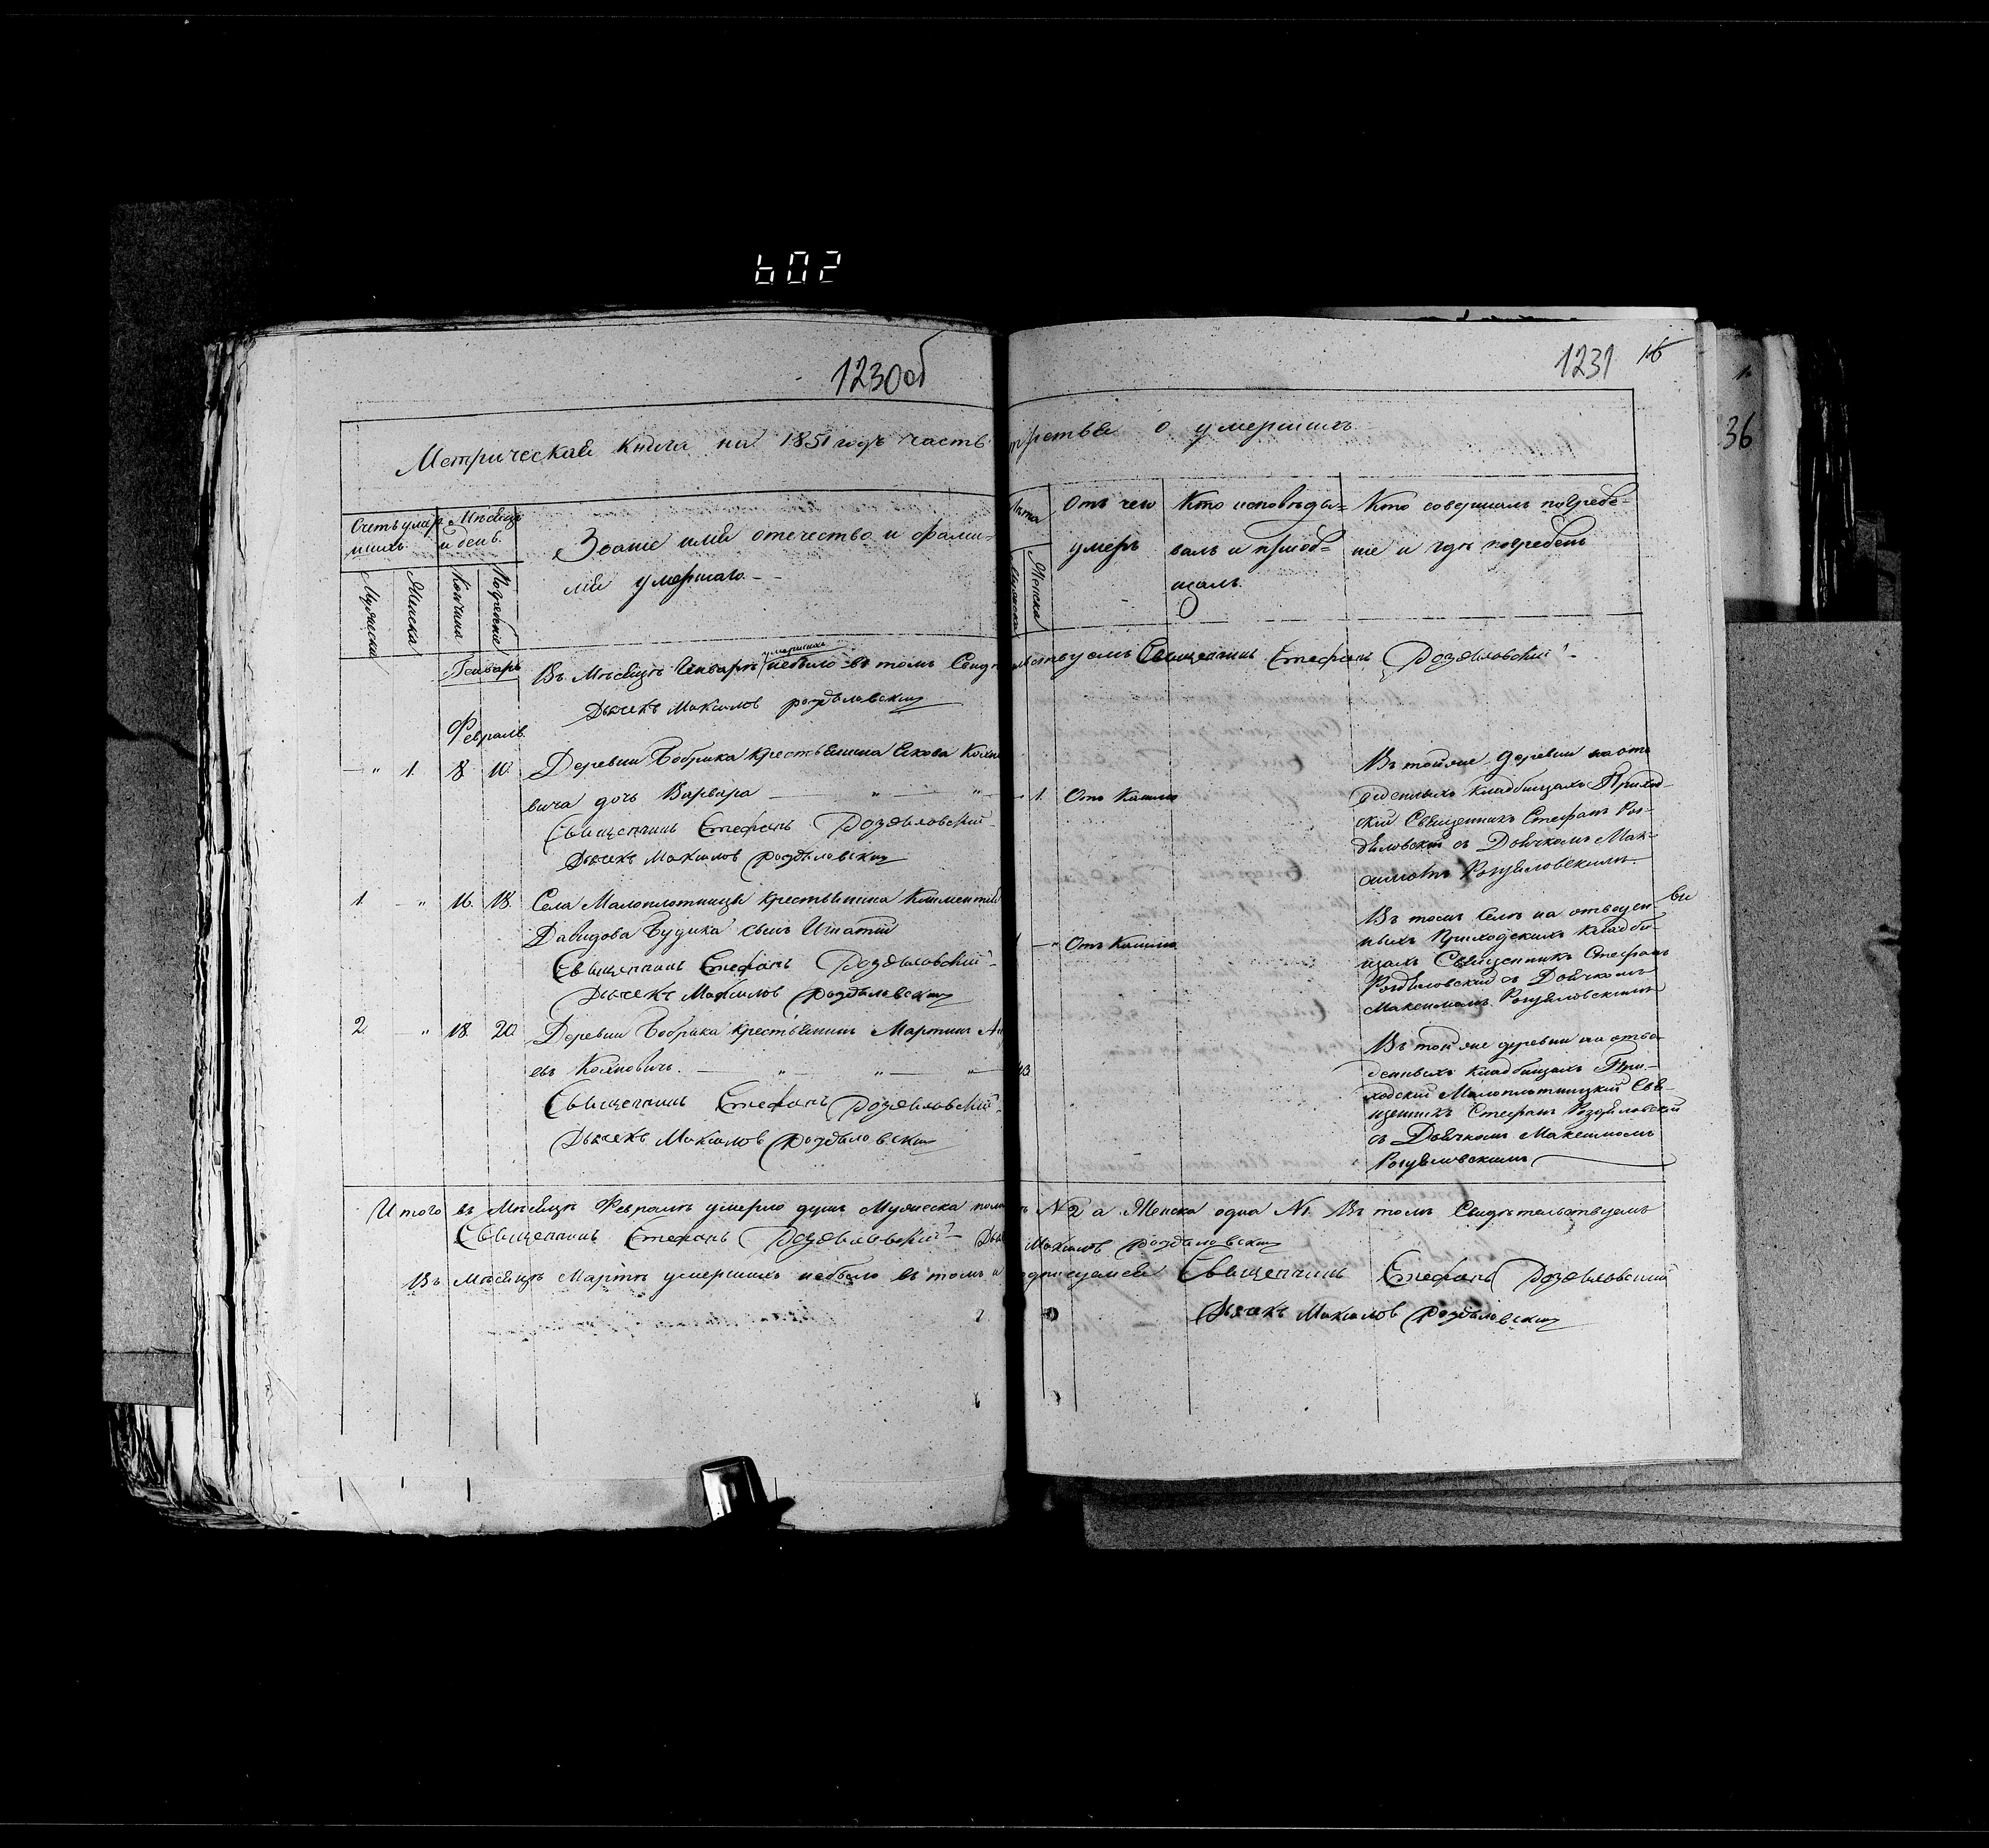 602
1230об
1231
16
36
Метрическая книга на 1851 годъ часть третья о умершихъ
Счетъ умер
шихъ
Мѣсяцъ
и день
Званіе имя отечество и фами=
лія умершаго
Мужеска
Женска
Кончина
Погребенія
Лѣта
Мужеска
Женска
Отъ чего
умеръ
Кто исповѣды=
валъ и пріоб=
щалъ
Кто совершалъ погребе=
ніе и гдѣ погребенъ
Генварь
умершихъ
Въ Мѣсяцѣ Генварѣ небыло въ томъ Свидѣтельствуемъ Священникъ Стефанъ Роздяловскій
Дьячекъ Максимов роздяловский
Февраль
" 1. 8 10. Деревни Бобрика крестьянина Якова Кохно
вича дочь Варвара " " 1. Отъ Кашля
Священникъ Стефанъ Роздяловскій
Дьячекъ Максимов роздяловский
Въ той же деревни на отве
деныхъ кладбищахъ Приход-
скій Священникъ Стефанъ Роз-
дяловскій съ Дьячкомъ Мак-
симомъ Роздяловскимъ
1. " 16. 18. Села Малоплотницы крестьянина Климентія
Давидова Будика сынъ Игнатій " Отъ Кашля
Священникъ Стефанъ Роздяловскій
Дьячекъ Максимов роздяловский
Въ томъ Селѣ на отведен
ныхъ Приходскихъ кладби-
щахъ Священникъ Стефанъ
Роздяловскій съ Дьячкомъ
Максимомъ Роздяловскимъ
2 " 18. 20. Деревни Бобрика крестьянинъ Мартинъ
евъ Кохновичъ. " " "
Священникъ Стефанъ Роздяловскій
Дьячекъ Максимов роздяловский
Въ той же деревни на отве
денныхъ кладбищахъ При-
ходскій Малоплотницкій Свя-
щенникъ Стефанъ Роздяловскій
съ Дьячкомъ Максимомъ
Роздяловскимъ
Итого въ Мѣсяцѣ Февралѣ умерло душъ Мужеска пола № 2 а Женска одна № 1. Въ томъ Свидѣтельствуемъ
Священникъ Стефанъ Роздяловскій Дьячекъ Максимов роздяловский
Въ Мѣсяцѣ Мартѣ умершихъ небыло въ томъ и подписуемся Священникъ Стефанъ Роздяловскій
Дьячекъ Максимов роздяловский